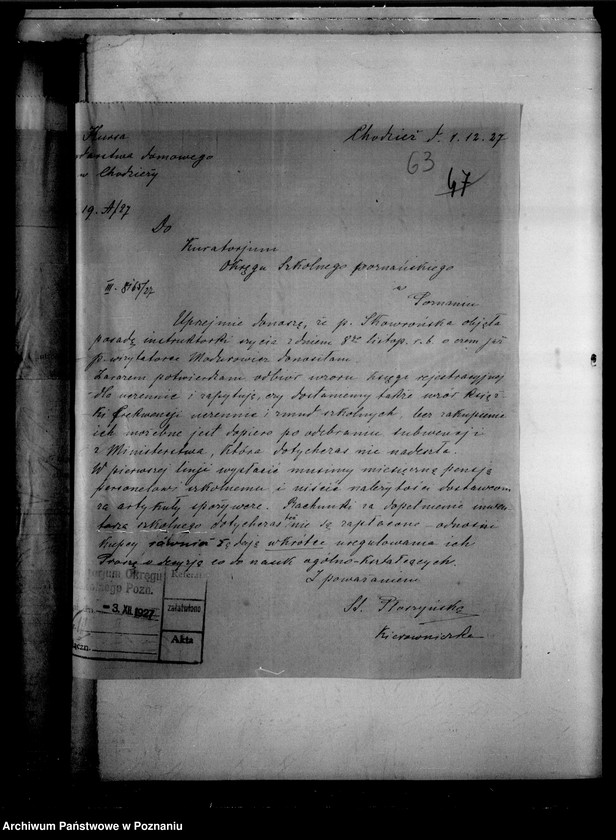 Kursa
darstwa domowego
w Chodzieży
Chodzież d. 1.12.27
63
47
19. A/27
Do
Kuratorjum
Okręgu Szkolnego poznańskiego
w
Poznaniu
III. 8165/27
Uprzejmie donoszę, że p. Skowrońska objęła
posadę instruktorki szycia z dniem listop. r.b. o czem już
p. wizytatorce donosiłam.
Zarazem potwierdzam odbiór wzoru księgi rejestracyjnej
dla uczennic i zapytuję, czy dostaniemy także wzór książ-
ki frekwencji uczennic i szkolnych, bez zakupienie
ich możebne jest dopiero po odebraniu subwencji
z Ministerstwa, która dotychczas nie nadeszła.
W pierwszej linji wypłacić musimy miesięczną pensję
personelowi szkolnemu i uiścić należytości dostawcom
za artykuły spożywcze. Rachunki za dopełnienie inwen-
tarza szkolnego dotychczas też nie są zapłacone - odnośni
kupcy żądają wkrótce uregulowania ich
Proszę o decyzję co do nauk ogólno-kształcących.
Z poważaniem
St.
Kierowniczka
torjum Okręgu
kolnego Pozn.
-3. XII. 1927
Referat
załatwiono
Akta
łączn.
Archiwum Państwowe w Poznaniu